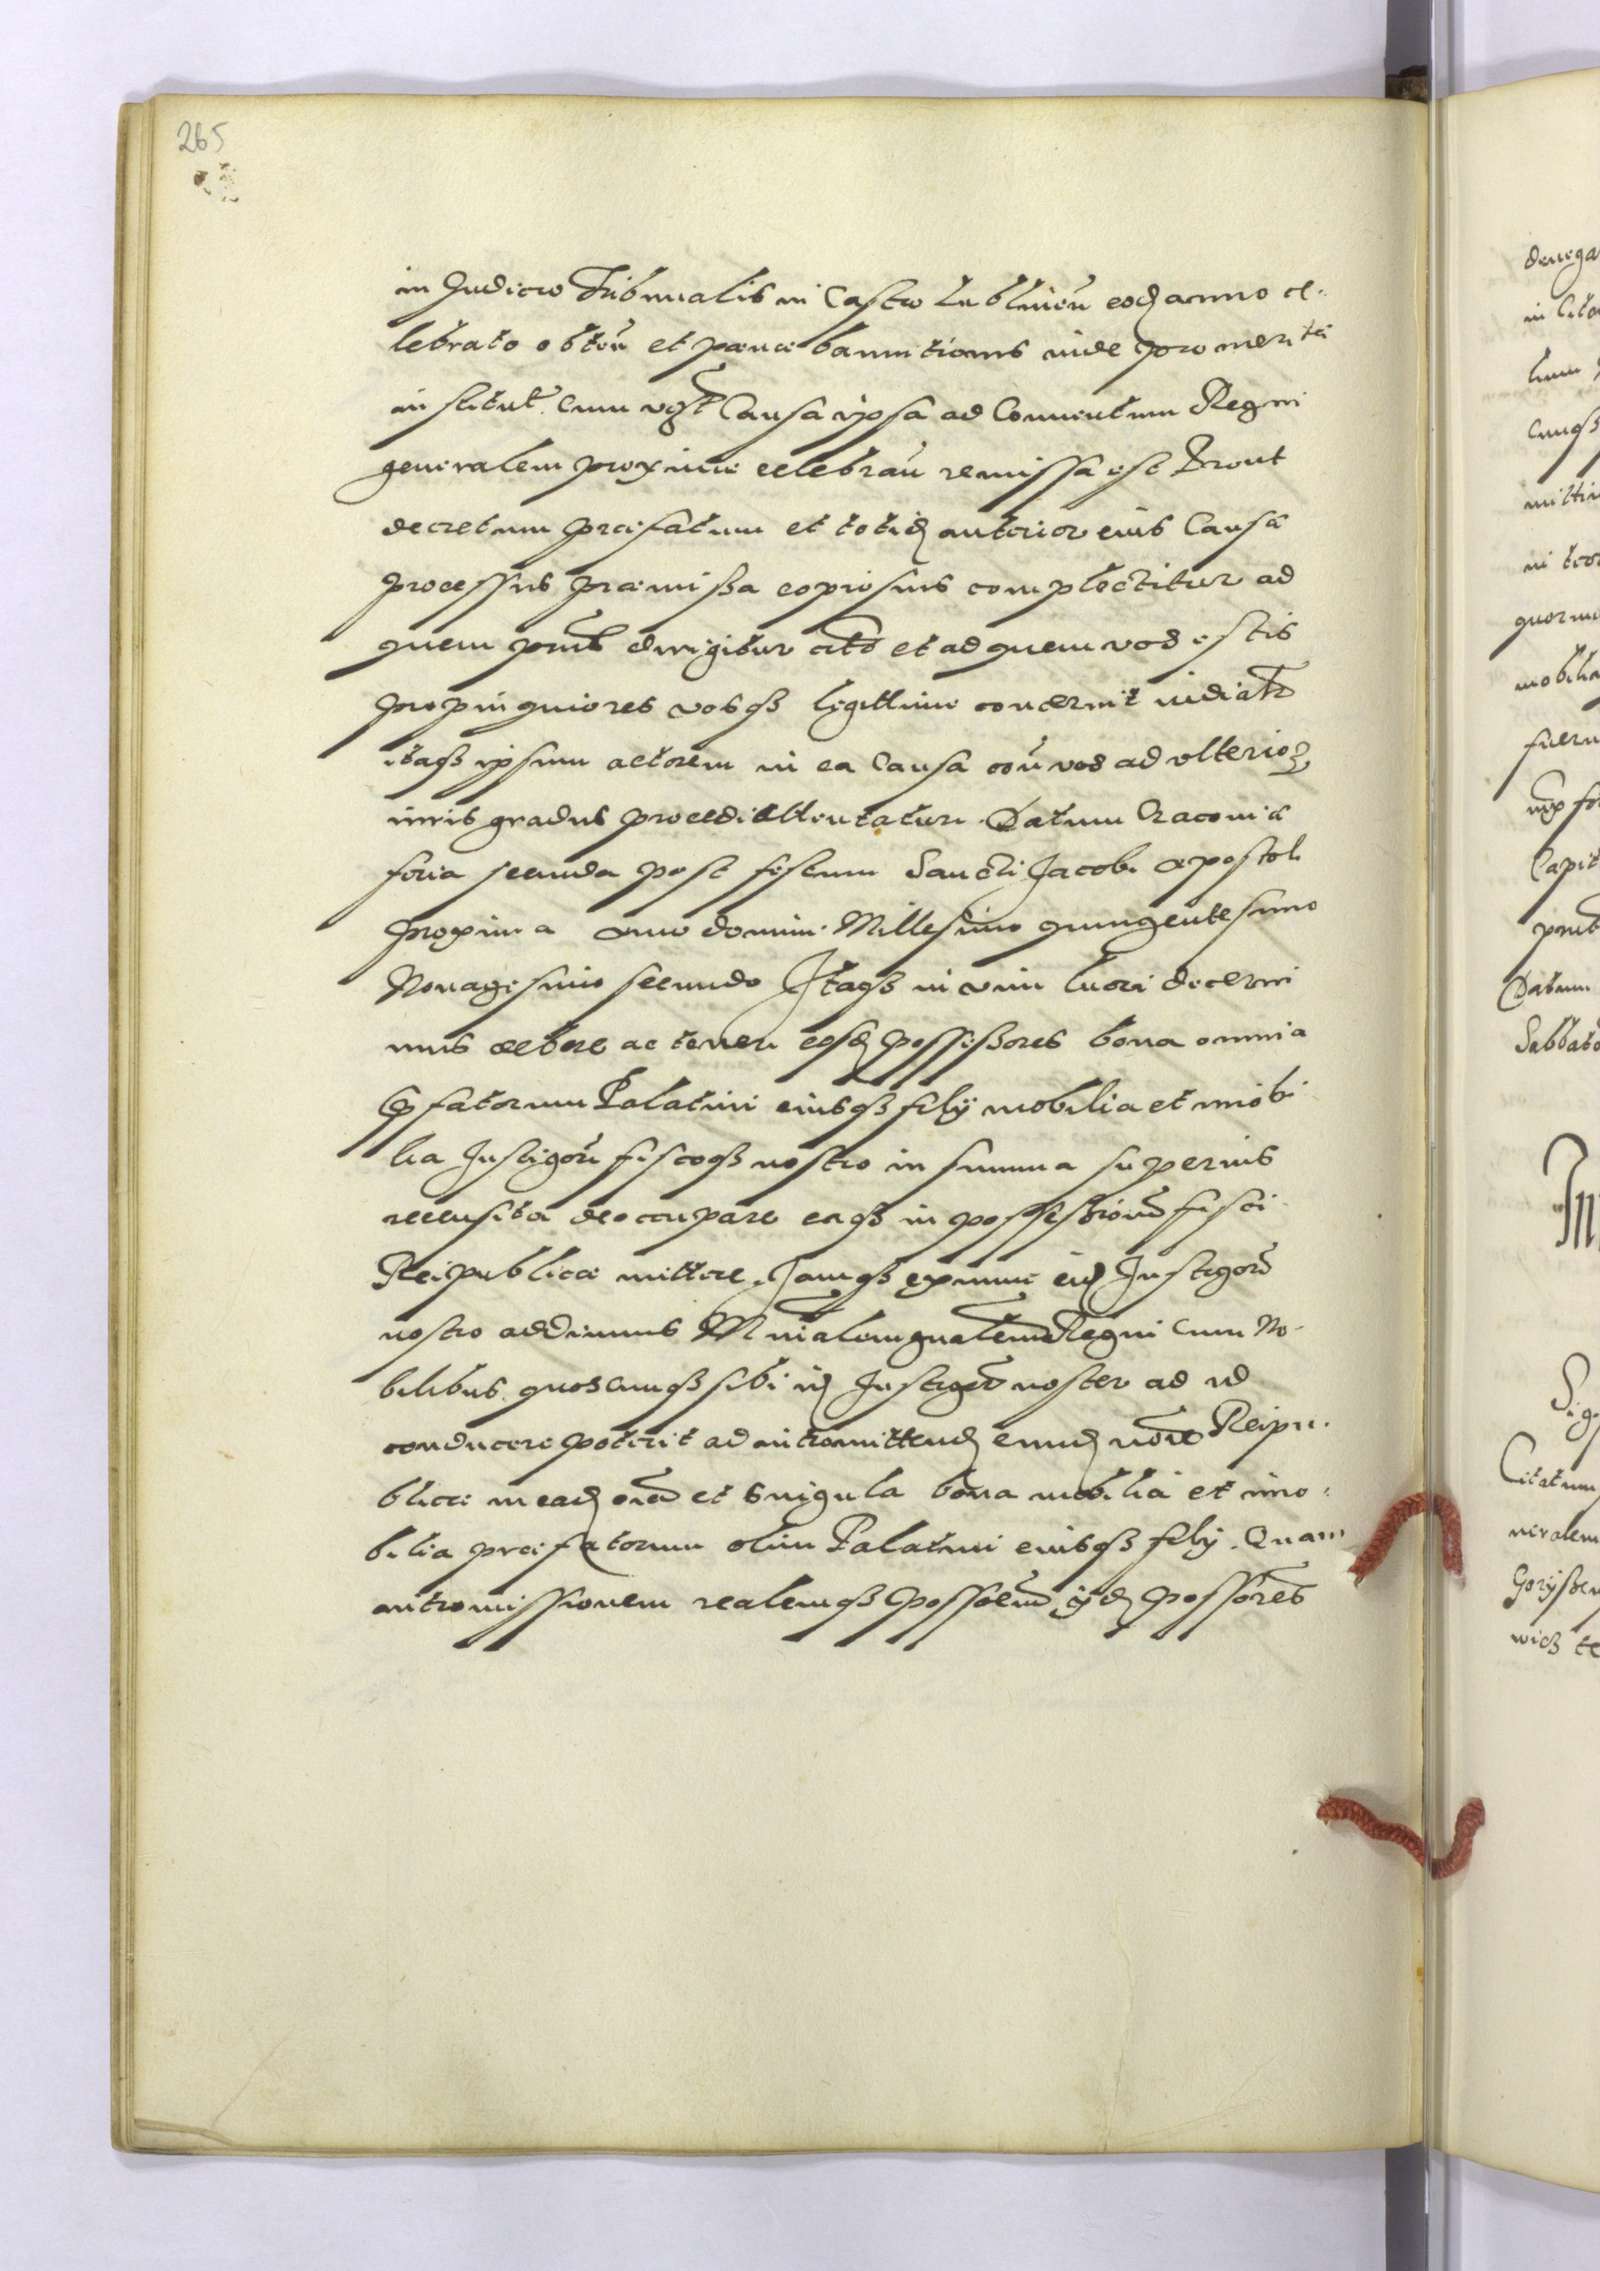 265
in Judicio Tribunalis in Castro Lublineñ eodȝ anno ce-
lebrato obteñ et pœnæ bannitionis inde promeritæ
instituť. Cum Causa ipsa ad Conventum Regni
generalem proxime celebrañ remissa est Prout
decretum præfatum et totidȝ anterior eius Causæ
processus præmissa copiosius complectitur ad
quem dirigitur et ad quem vos estis
propinquiores vosqȝ legittime concernit
itaqȝ ipsum actorem in ea Causa coñ vos ad vlterioȝ
iuris gradus procedi attentaturi Datum Cracoviæ
feria secunda post festum Sancti Jacobi apostoli
proxima Anno domini Millesimo quingentesimo
Nonagesimo secundo Itaqȝ in vim decerni
mus debere ac teneri eosdȝ possessores bona omnia
Pfatorum Palatini eiusqȝ filij mobilia et imobi
lia Instigoři fiscoqȝ nostro in summa superius
recensita deoccupare eaqȝ in possessionē fisci
Reipublicæ mittere. Jamqȝ exnunc eidȝ Instigoři
nostro addimus Mnialem gnalem Regni Cum No-
bilibus quoscunqȝ sibi idȝ Instigor noster ad id
conducere poterit ad intromittendȝ eundȝ noīe Reipu-
blicæ in eadȝ oīa et singula bona mobilia et imo-
bilia præfatorum olim Palatini eiusqȝ filij. Quam
intromissionem realemqȝ possoem ijdȝ possores
denega
in
mittim
quorum
mobilia
fueru
Capit
Datum
Sabbato
Citatum
neralem